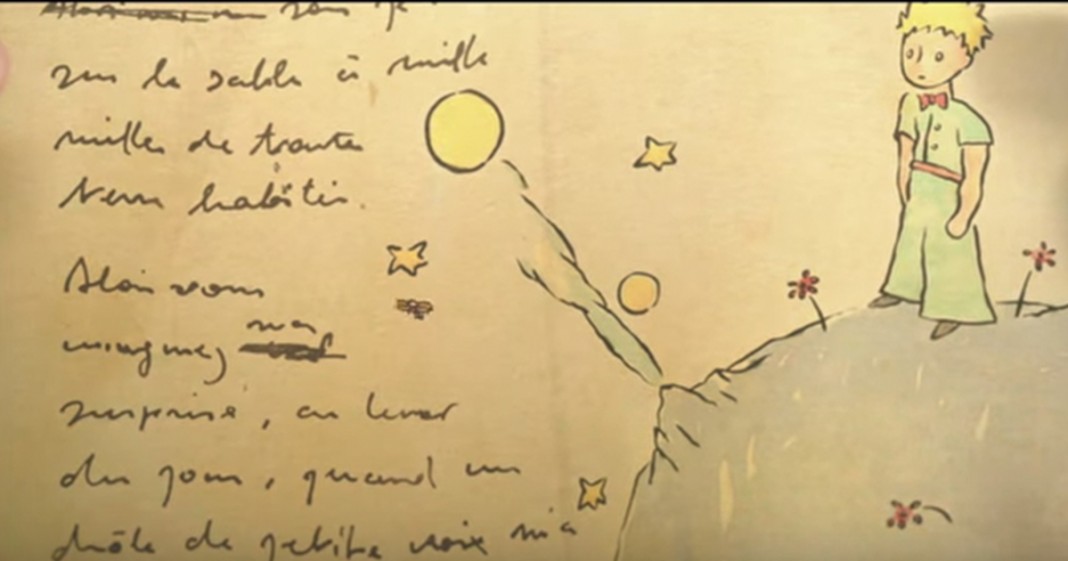 sur le sable à mille
milles de toute
terre habitée.
Alors vous
ma
imaginez
surprise, au lever
du jour, quand une
drôle de petite voix m'a